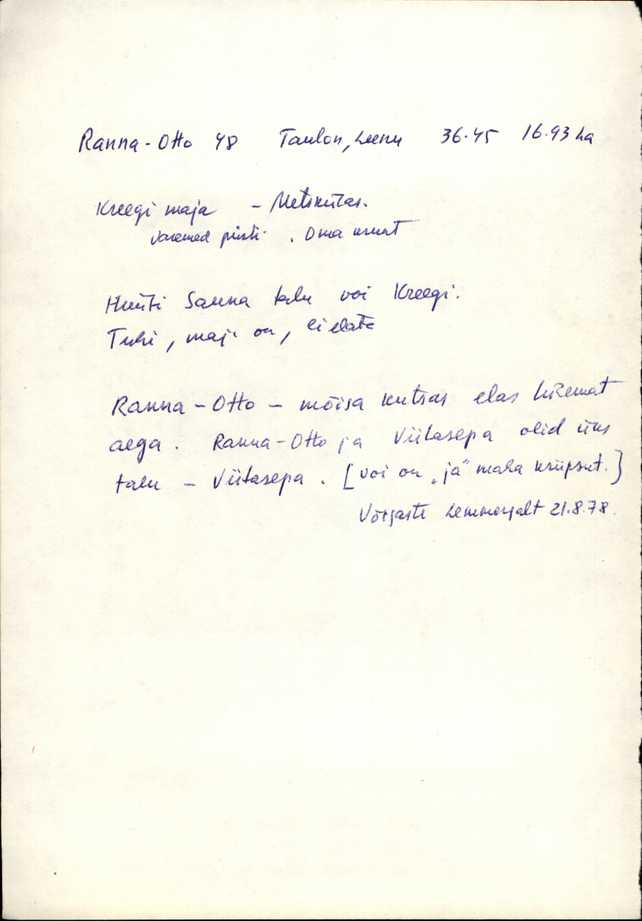 Ranna-Otto 48 Taulon, Leenu 36.45 16.93 ha
Kreegi maja - Metskülas.
Varemed püsti. Oma
Hunti Sauna talu või Kreegi.
Tühi, maja on, ei elata
Ranna-Otto - mõisa kutsar elas hiremat
aega. Ranna-Otto ja Viitasepa olid üks
talu - Viitasepa. [Või on "ja" maha kriipsut.]
Lemmerjalt 21.8.78.